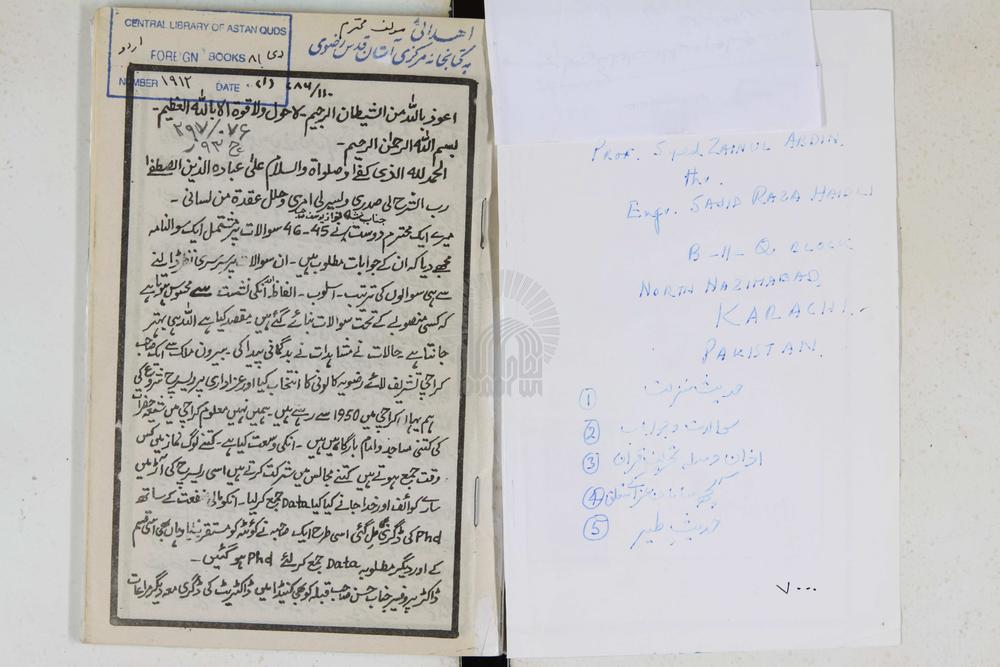 CENTRAL LIBRARY OF ASTAN QUDS
اردو
FOREIGN BOOKS
NUMBER ۱۹۱۲ DATE
اهدائی مؤلف محترم
به کتابخانه مرکزی آستان قدس رضوی
اعوذ باللہ من الشیطان الرجیم - لاحول ولاقوة الا باللہ العظیم -
۲۹۷/۰۷۶
بسم اللہ الرحمٰن الرحیم -
الحمد للہ الذی کفٰی وصلواة والسلام علیٰ عبادہ الذین الصطفٰے
رب الشرح لی صدری ولیسرلی امری وحلل عقدة من لسانی -
میرے ایک محترم دوست نے 45-46 سوالات پر مشتمل ایک سوالنامہ
مجھے دیا کہ ان کے جوابات مطلوب ہیں - ان سوالات پر سرسری نظر ڈالنے
سے ہی سوالوں کی ترتیب - اسلوب - الفاظ انکی نشست سے محسوس ہوتا ہے
کہ کسی منصوبے کے تحت سوالات بنائے گئے ہیں - مقصد کیا ہے اللہ ہی بہتر
جانتا ہے حالات نے مشاہدات نے بدگمانی پیدا کی - بیرون ملک سے ایک صاحب
کراچی تشریف لائے رضویہ کالونی کا انتخاب کیا اور عزاداری پر ریسرچ شروع کی
ہم یہاں کراچی میں 1950 سے رہے ہیں - ہمیں نہیں معلوم کراچی میں شیعہ حضرات
کی کتنی مساجد و امام بارگاہیں ہیں - انکی وسعت کیا ہے - کتنے لوگ نماز میں کس
وقت جمع ہوتے ہیں کتنے مجالس میں شرکت کرتے ہیں اسی ریسرچ کی آڑ میں
سارے کوائف اور خدا جانے کیا کیا Data جمع کر لیا - انکو مالی منفعت کے ساتھ
Phd کی ڈگری مل گئی اسی طرح ایک نے کوئٹہ کو مستقر بنایا وہاں بھی اسی قسم
کے اور دیگر مطلوبہ Data جمع کرلئے Phd ہو گئیں -
ڈاکٹر پروفیسر جناب حسن صاحب قبلہ کو بھی کینیڈا میں ڈاکٹریٹ کی ڈگری معہ دیگر مراعات
Prof. Syed ZAINUL ABDIN.
thr.
Engr. SAJID RAZA HAIDRI
B-11-Q BLOCK
NORTH NAZIMABAD,
KARACHI.
PAKISTAN.
① حدیث منزلت
②
③ اذان
④
⑤ حدیث طیر
۷۰۰۰